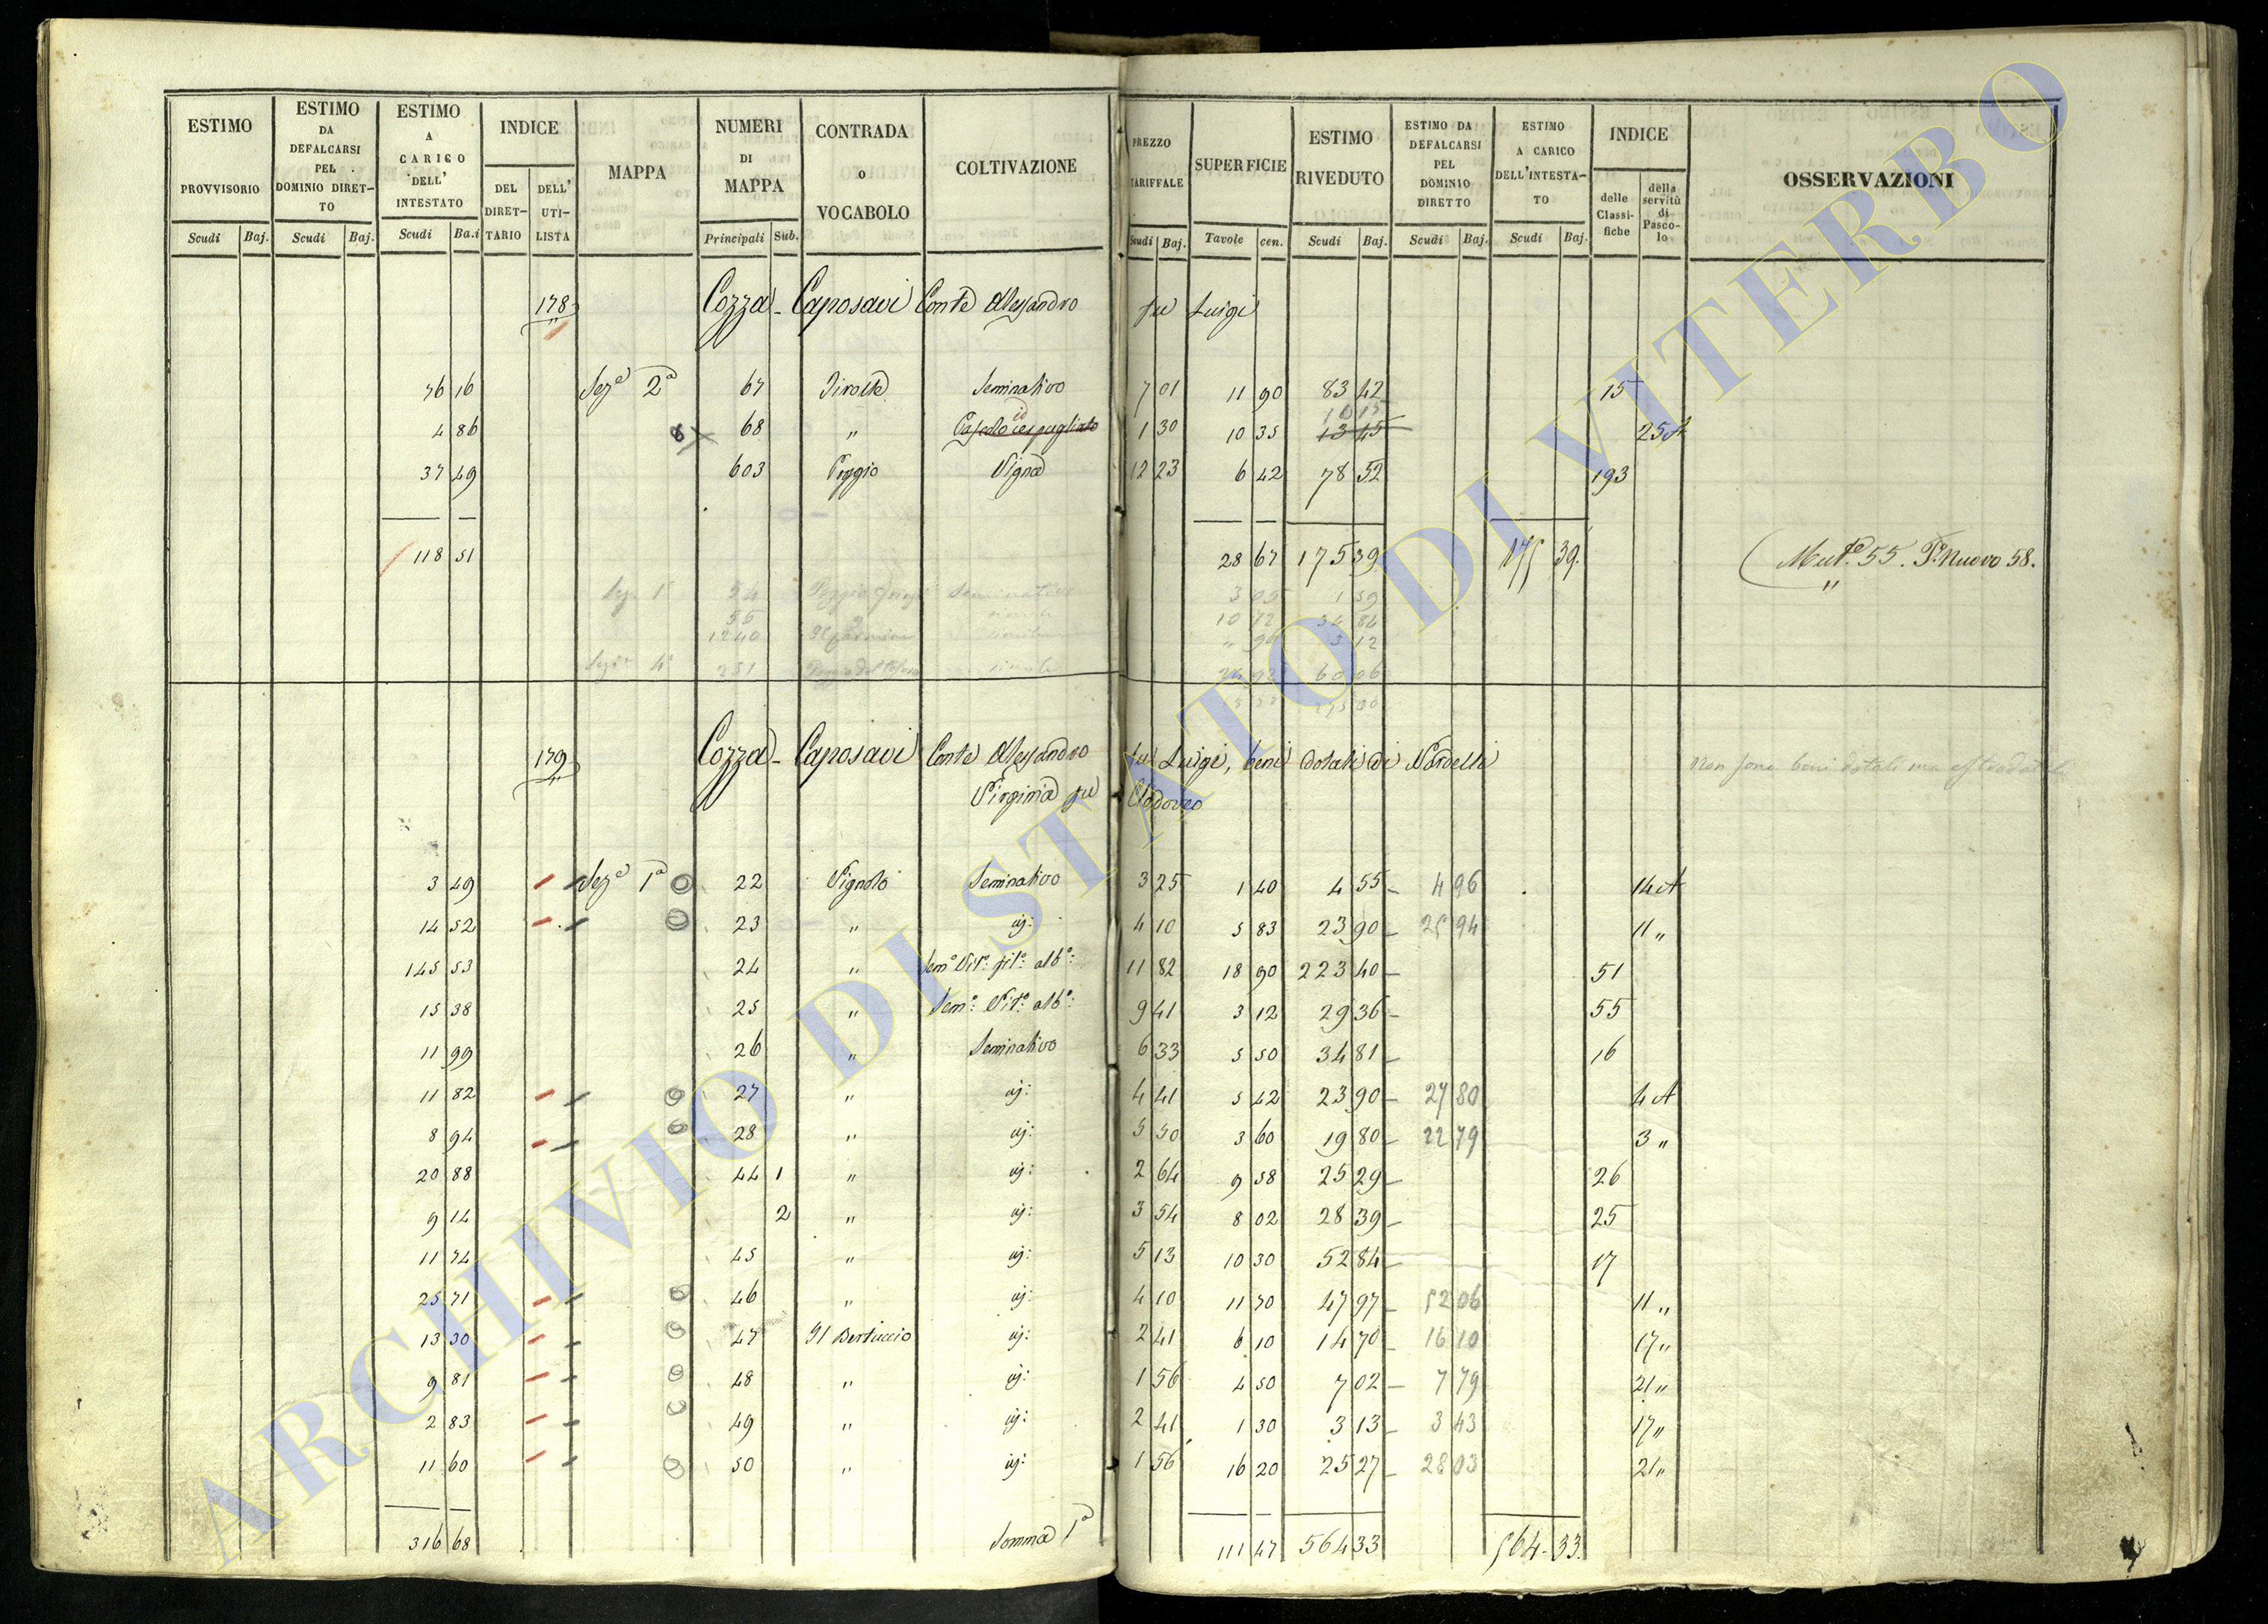 ESTIMO PROVVISORIO Scudi Baj.
ESTIMO DA DEFALCARSI PEL DOMINIO DIRET-TO Scudi Baj.
ESTIMO A CARICO DELL' INTESTATO Scudi Ba.i
INDICE DEL DIRET-TARIO DELL' UTI-LISTA
MAPPA
NUMERI DI MAPPA Principali Sub.
CONTRADA o VOCABOLO
COLTIVAZIONE
PREZZO TARIFFALE Scudi Baj.
SUPERFICIE Tavole cen.
ESTIMO RIVEDUTO Scudi Baj.
ESTIMO DA DEFALCARSI PEL DOMINIO DIRETTO Scudi Baj.
ESTIMO A CARICO DELL'INTESTA-TO Scudi Baj.
INDICE delle Classi-fiche della servitù di Pasco-lo
OSSERVAZIONI
178 Cozza - Caposavi Conte Alessandro fu Luigi
76 16 Seze 2a 67 Seminativo 7 01 11 90 83 42 15
4 86 68 " Cespugliato 1 30 10 35 10 15 13 45 25 A
37 49 603 Poggio Vigna 12 23 6 42 78 52 193
118 51 28 67 175 39 175 39. Mut.e 55. P.o Nuovo 58.
"
54 Seminativo 3 05 1 59
55 simile 10 72 34 84
1240 simile " 90 3 12
251 simile 60 06
179 Cozza - Caposavi Conte Alessandro fu Luigi, beni dotali di Nardelli
Virginia fu Clodoveo
Non sono beni dotali ma estradotali
3 49 Seze 1a 22 Vignolo Seminativo 3 25 1 40 4 55 4 96 14 A
14 52 23 " aj: 4 10 5 83 23 90 25 94 11 "
145 53 24 " Sem.o Vit.o fil.o alb.o: 11 82 18 90 223 40 51
15 38 25 " Sem.o: Vit.o alb.o: 9 41 3 12 29 36 55
11 99 26 " Seminativo 6 33 5 50 34 81 16
11 82 27 " aj: 4 41 5 42 23 90 27 80 4 A
8 94 28 " aj: 5 50 3 60 19 80 22 79 3 "
20 88 44 1 " aj: 2 64 9 58 25 29 26
9 14 2 " aj: 3 54 8 02 28 39 25
11 74 45 " aj: 5 13 10 30 52 84 17
25 71 46 " aj: 4 10 11 70 47 97 52 06 11 "
13 30 47 Il Bertuccio aj: 2 41 6 10 14 70 16 10 17 "
9 81 48 " aj: 1 56 4 50 7 02 7 79 21 "
2 83 49 " aj: 2 41 1 30 3 13 3 43 17 "
11 60 50 " aj: 1 56 16 20 25 27 28 03 21 "
316 68 Somma 1a 111 47 564 33 564 - 33.
ARCHIVIO DI STATO DI VITERBO